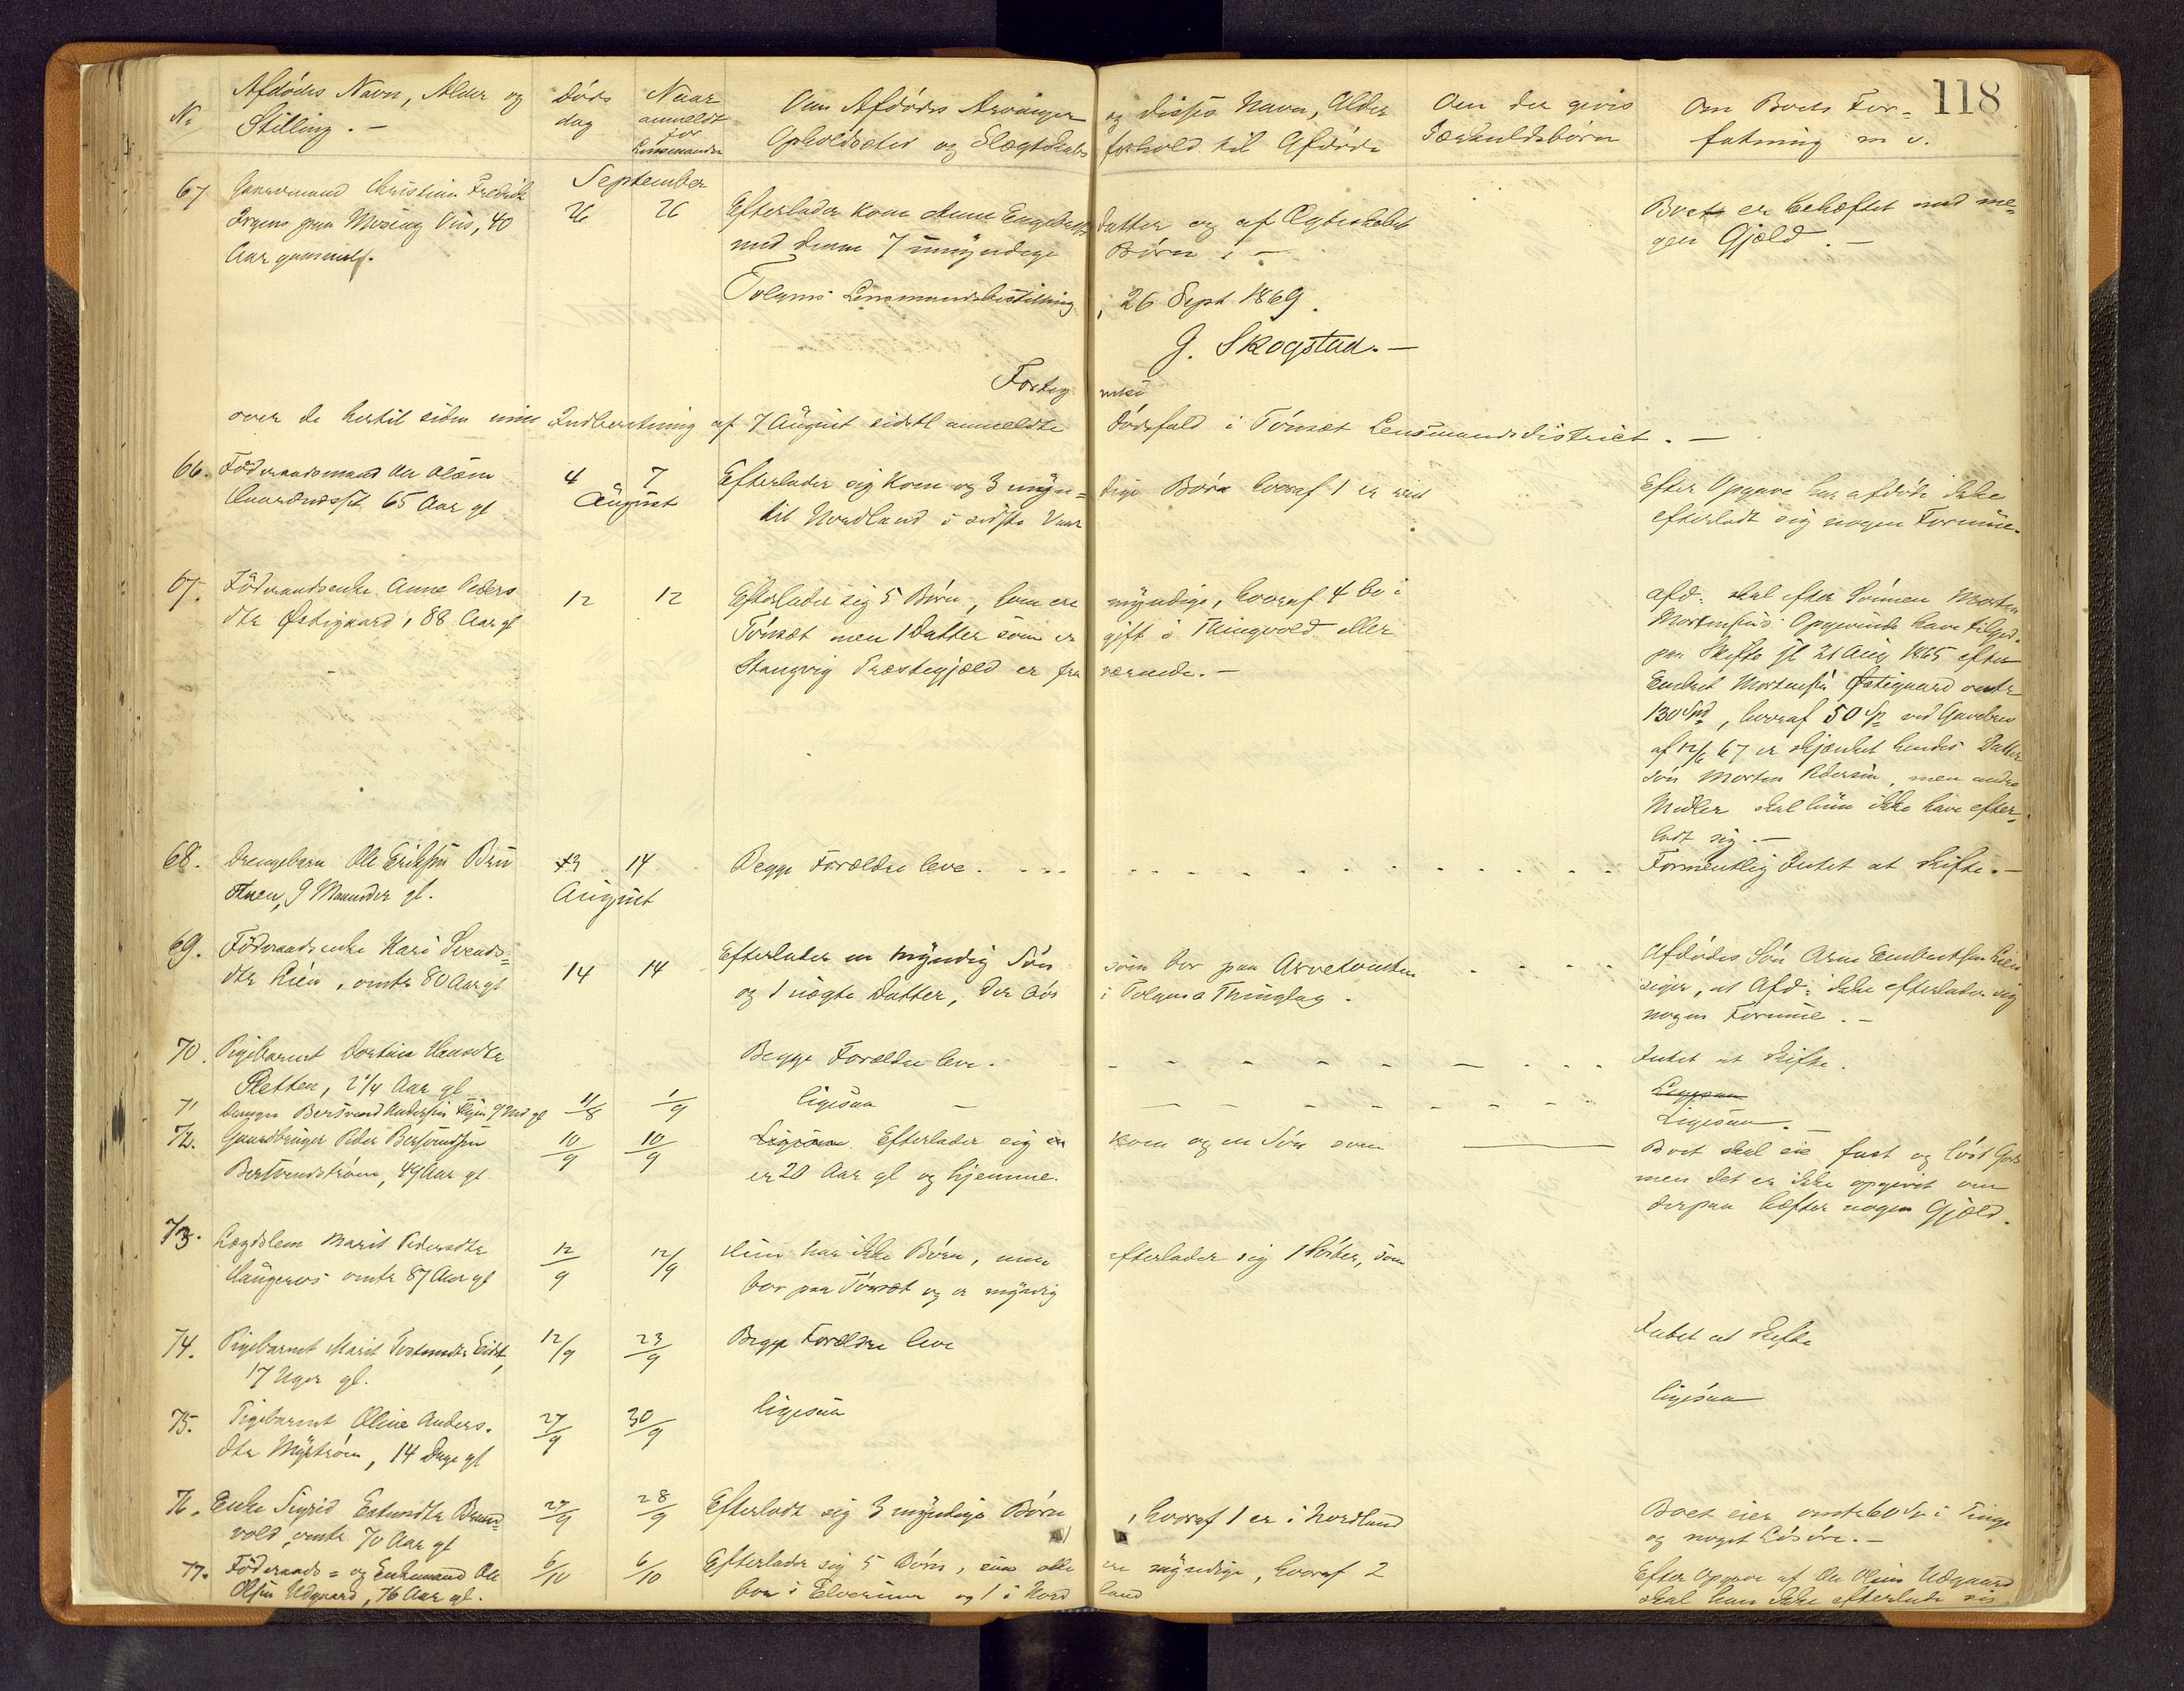 118
No Afdødes Navn, Alder og Døds Naar Om Afdødes Arvinger og disses Navn, Alder Om der gives Om Boets For-
Stilling. - dag anmeldt for Lensmanden Opholdssted og Slægtskabs forhold til Afdøde Særkuldsbørn fatning m v.
September
67 Gaardmand Christian Fredrik 26 26 Efterlader Kone Anne Engebrets datter og af Ægteskabet Boet er behæftet med me-
paa Moseng Vis, 40 med denne 7 umyndige Børn. - gen Gjæld. -
Aar gammel.
Tolgens Lensmandsbestilling, 26 Sept 1869.
G. Skogstad. -
Forteg nelse
over de hertil siden min Indberetning af 7 August sidstl anmeldte Dødsfald i Tönset Lensmandsdistrict. -
66. Föderaadsmand Ole Olsen 4 7 Efterlader sig Kone og 3 myn- dige Børn hvoraf 1 er reist Efter Opgave har afdøde ikke
65 Aar gl August til Nordland i sidste Vaar efterladt sig nogen Formue.
67. Föderaadsenke Anne Peders 12 12 Efterlader sig 5 Børn, som ere myndige, hvoraf 4 bo i afd: skal efter Sönnen Morten
dtr Østigaard, 88 Aar gl Tönset men 1 Datter som er gift i Thingvold eller Mortensens Opgivende have
Stangvig Præstegjæld er fra værende. - paa Skifte sl 21 Aug 1865 efter
Embret Mortensen Østigaard omtr
130 Spd, hvoraf 50 Sp ved Gavebrev
af 12/6 67 er skjænket hendes Datter
sön Morten Pedersen, men andre
Midler skal hun ikke have efter-
ladt sig. -
68. Drengebarn Ole Eriksen Bru 13 14 Begge Forældre leve. Formentlig Intet at skifte. -
9 Maaneder gl. August
69. Föderaadsenke Kari Svends= 14 14 Efterlader en myndig Sön som bor paa Arvetomten Afdødes Sön Arne Embretsen Lien
dtr Lien, omtr 80 Aar gl og 1 uægte Datter, der bor i Tolgens Thinglag. siger, at Afd: ikke efterlader sig
nogen Formue. -
70. Pigebarnet Dortea Hansdtr Begge Forældre leve. Intet at skifte.
Sletten, 2 1/4 Aar gl
Ligesaa
71 Drengen Bersvend Andersen 9 Md gl 11/8 1/9 ligesaa Ligesaa. -
72. Gaardbruger Peder Bersvendsen 10/9 10/9 Ligesaa Efterlader sig en Kone og en Sön som Boet skal eie fast og löst Gods
Bersvendströen, 49 Aar gl er 20 Aar gl og hjemme. men det er ikke opgivet om
derpaa hefter nogen Gjæld.
73. Lægdslem Marit Pedersdtr 12/9 12/9 Hun har ikke Børn, men efterlader sig 1 Söster, som
Haugerøs omtr 87 Aar gl bor paa Tönset og er myndig
74. Pigebarnet Marit Eidet, 12/9 23/9 Begge Forældre leve Intet at skifte
17 Uger gl.
75. Pigebarnet Oline Anders. 27/9 30/9 ligesaa ligesaa
dtr Myströen, 14 Dage gl
76. Enke Sigrid Estensdtr Brun= 27/9 28/9 Efterladt sig 3 myndige Børn, hvoraf 1 er i Nordland Boet eier omtr 60 Sp i Penge
vold, omtr 70 Aar gl og noget Lösöre. -
77. Föderaads= og Enkemand Ole 6/10 6/10 Efterlader sig 5 Børn, som alle ere myndige, hvoraf 2 Efter Opgave af Ole Olsen Udgaard
Olsen Udgaard, 76 Aar gl. bor i Elverum og 1 i Nord land skal han ikke efterlade sig